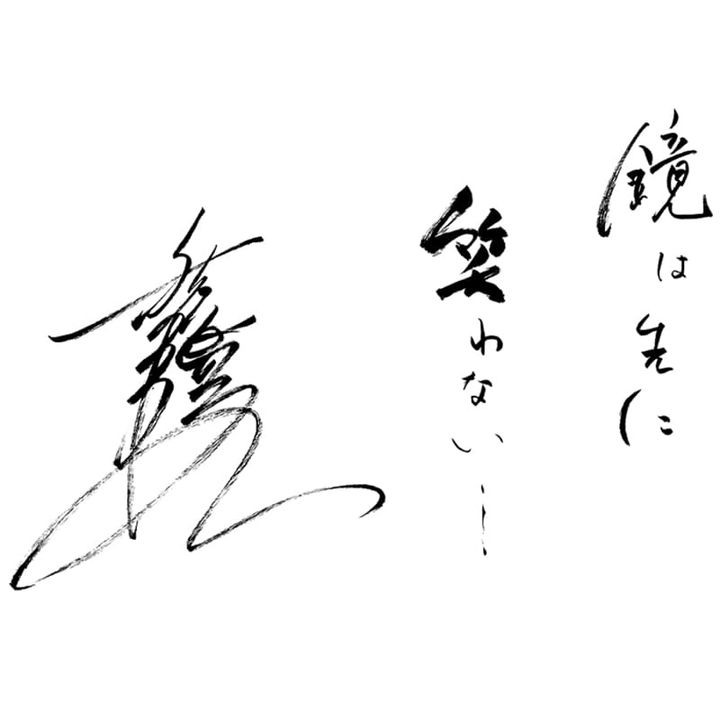 鏡は先に
笑わない―